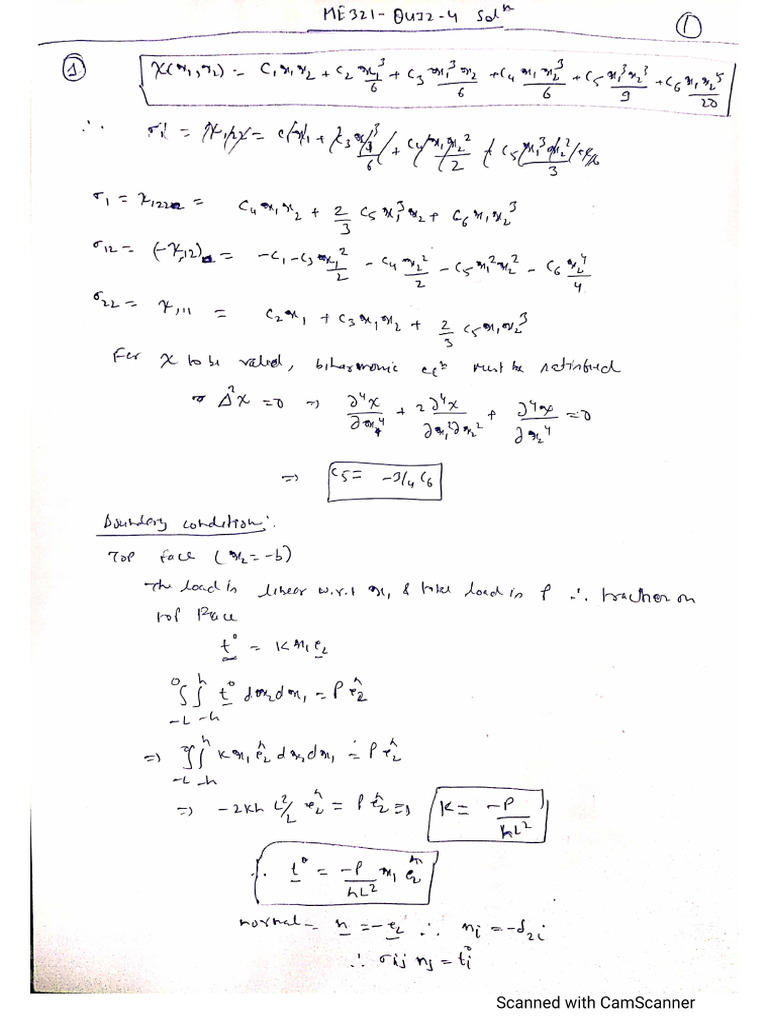 ME321-QUIZ-4 Solⁿ
①
① χ(x₁,x₂) = C₁x₁x₂ + C₂ x₁³/6 + C₃ x₁³x₂/6 + C₄ x₁x₂³/6 + C₅ x₁³x₂³/9 + C₆ x₁x₂⁵/20
∴
σ₁ = χ,₂₂ = C₄x₁x₂ + 2/3 C₅x₁³x₂ + C₆x₁x₂³
σ₁₂ = (-χ,₁₂) = -C₁ - C₃ x₁²/2 - C₄ x₂²/2 - C₅x₁²x₂² - C₆ x₂⁴/4
σ₂₂ = χ,₁₁ = C₂x₁ + C₃x₁x₂ + 2/3 C₅x₁x₂³
For χ to be valid, biharmonic eqⁿ must be satisfied
or Δ²χ = 0 ⇒ ∂⁴χ/∂x₁⁴ + 2∂⁴χ/∂x₁²∂x₂² + ∂⁴χ/∂x₂⁴ = 0
⇒ C₅ = -3/4 C₆
Boundary condition:
Top face (x₂=-b)
The load is linear w.r.t x₁ & total load is P ∴ traction on
top face
t⁰ = Kx₁e₂
∫₋L⁰ ∫₋h^h t⁰ dx₂dx₁ = P ê₂
⇒ ∫₋L⁰ ∫₋h^h Kx₁ê₂ dx₂dx₁ = P ê₂
⇒ -2Kh L²/2 ê₂ = P ê₂ ⇒ K = -P/hL²
∴ t⁰ = -P/hL² x₁ ê₂
normal = n = -e₂ ∴ nᵢ = -δ₂ᵢ
∴ σᵢⱼ nⱼ = tᵢ⁰
Scanned with CamScanner